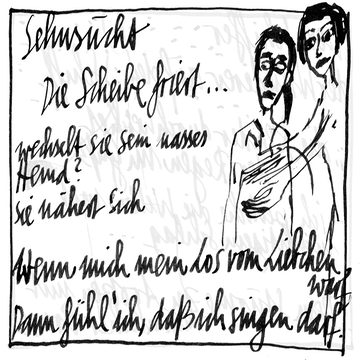 Sehnsucht
Die Scheibe friert...
wechselt sie sein nasses
Hemd?
sie nähert sich
Wenn mich mein Los vom Liebchen
warf
Dann fühl' ich, daß ich singen darf.